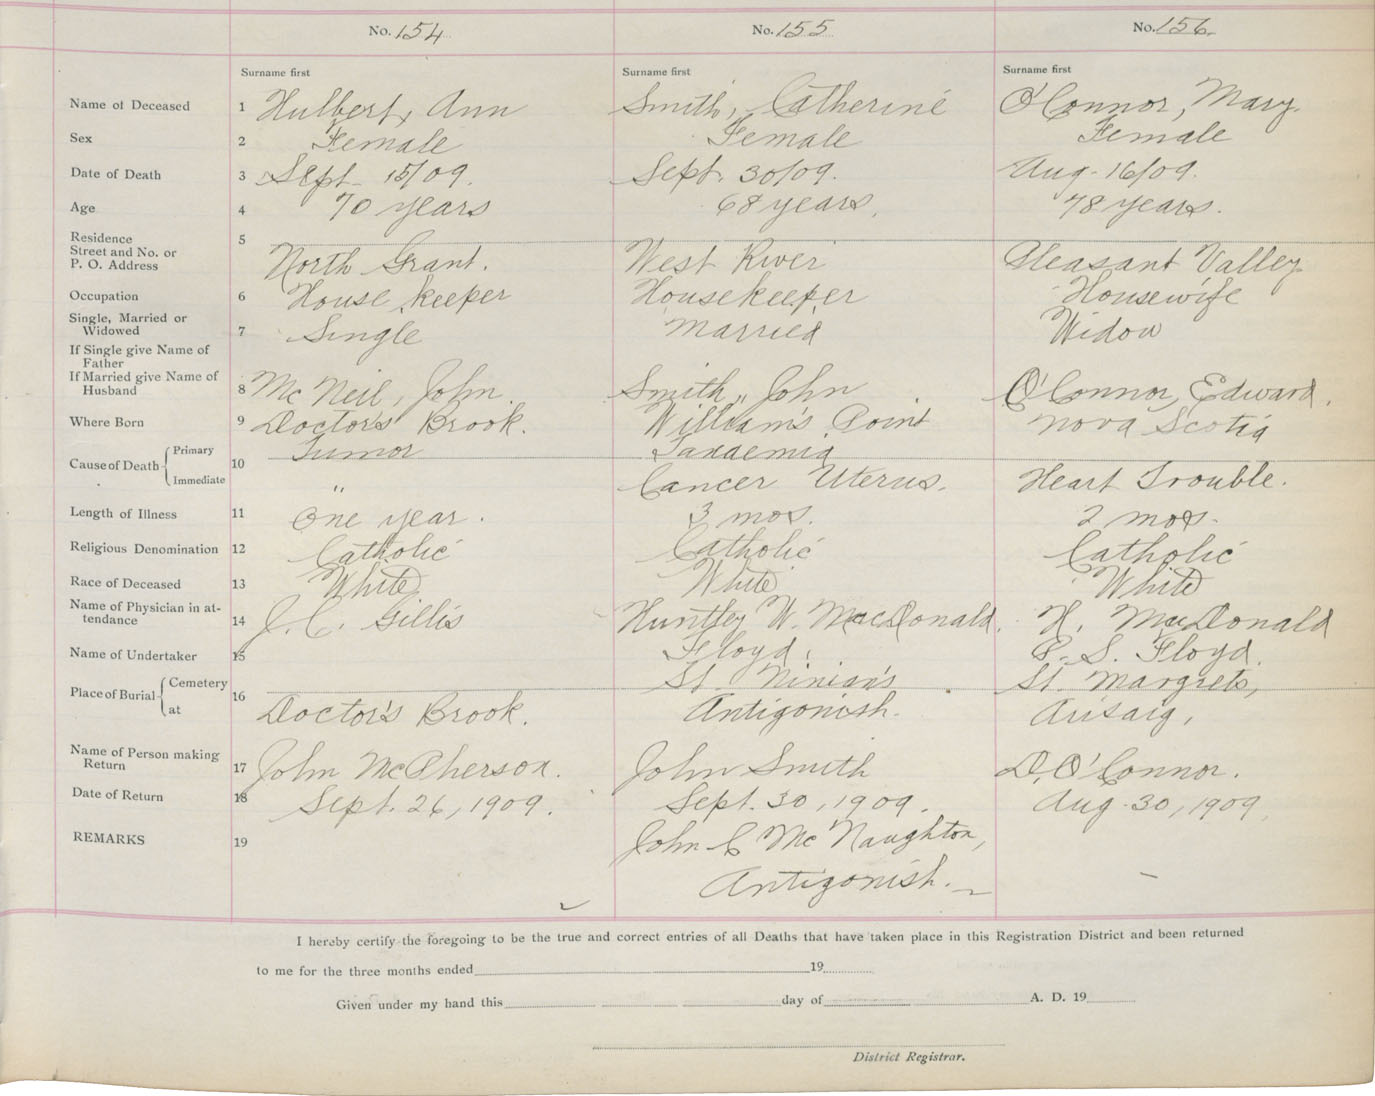 No. 154 No. 155 No. 156.
Surname first Surname first Surname first
Name of Deceased 1 Hulbert, Ann Smith, Catherine O'Connor, Mary.
Sex 2 Female Female Female
Date of Death 3 Sept. 15/09. Sept. 30/09. Aug. 16/09.
Age 4 70 years 68 years. 78 years.
Residence 5
Street and No. or
P. O. Address North Grant. West River Pleasant Valley
Occupation 6 House keeper Housekeeper Housewife
Single, Married or
Widowed 7 Single Married Widow
If Single give Name of
Father
If Married give Name of
Husband 8 McNeil, John. Smith, John O'Connor, Edward.
Where Born 9 Doctor's Brook. William's Point Nova Scotia
Cause of Death Primary 10 Tumor
Immediate " Cancer Uterus. Heart Trouble.
Length of Illness 11 One year. 3 mos. 2 mos.
Religious Denomination 12 Catholic Catholic Catholic
Race of Deceased 13 White White White
Name of Physician in at-
tendance 14 J. C. Gillis Huntley W. MacDonald. H. MacDonald
Name of Undertaker 15 Floyd. P. S. Floyd.
Place of Burial Cemetery 16 St. Ninian's St. Margrets,
at Doctor's Brook. Antigonish. Arisaig,
Name of Person making
Return 17 John McPherson. John Smith D. O'Connor.
Date of Return 18 Sept. 26, 1909. Sept. 30, 1909. Aug. 30, 1909.
REMARKS 19 John C McNaughton,
Antigonish.
I hereby certify the foregoing to be the true and correct entries of all Deaths that have taken place in this Registration District and been returned
to me for the three months ended 19
Given under my hand this day of A. D. 19
District Registrar.